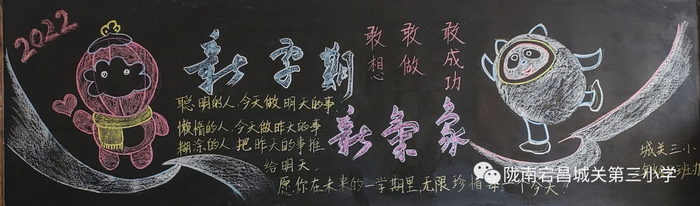 2022
新学期
新气象
敢想
敢做
敢成功
聪明的人,今天做明天的事,
懒惰的人,今天做昨天的事
糊涂的人,把昨天的事推
给明天,
愿你在未来的一学期里,无限珍惜每一个今天!
城关三小
班办
陇南宕昌城关第三小学